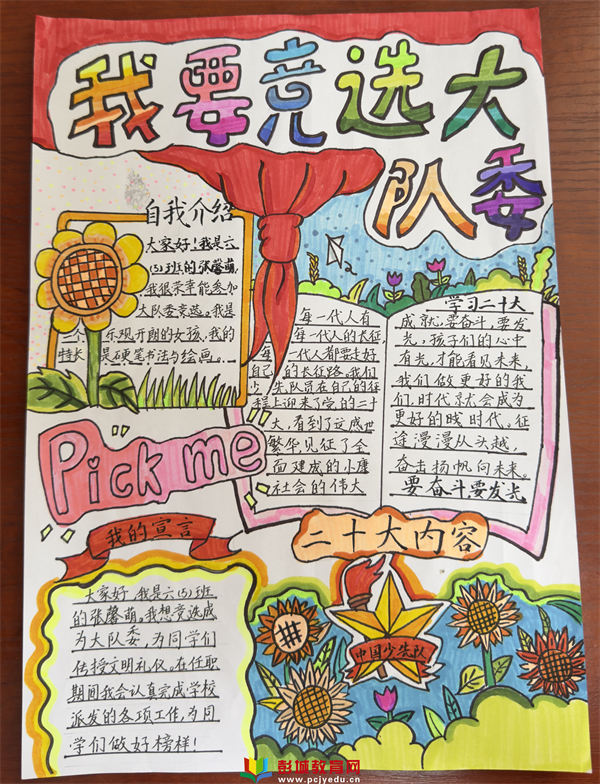 我要竞选大
队委
自我介绍
大家好！我是六
(5)班的张馨萌，
我很荣幸能参加
大队委竞选。我是
一个乐观开朗的女孩，我的
特长是硬笔书法与绘画。
每一代人有
每一代人的长征
每一代人都要走好
自己的长征路，我们
少先队员在自己的征
程上迎来了党的二十
大，看到了这盛世
繁华见证了全
面建成的小康
社会的伟大
学习二十大
成就，要奋斗，要发
光，孩子们的心中
有光，才能看见未来，
我们做更好的我
们，时代就会成为
更好的时代。征
途漫漫从头越，
奋击扬帆向未来。
要奋斗要发光
Pick me
我的宣言
大家好，我是六(5)班
的张馨萌，我想竞选成
为大队委，为同学们
传授文明礼仪，在任职
期间我会认真完成学校
派发的各项工作，为同
学们做好榜样！
二十大内容
中国少先队
彭城教育网
www.pcjyedu.cn